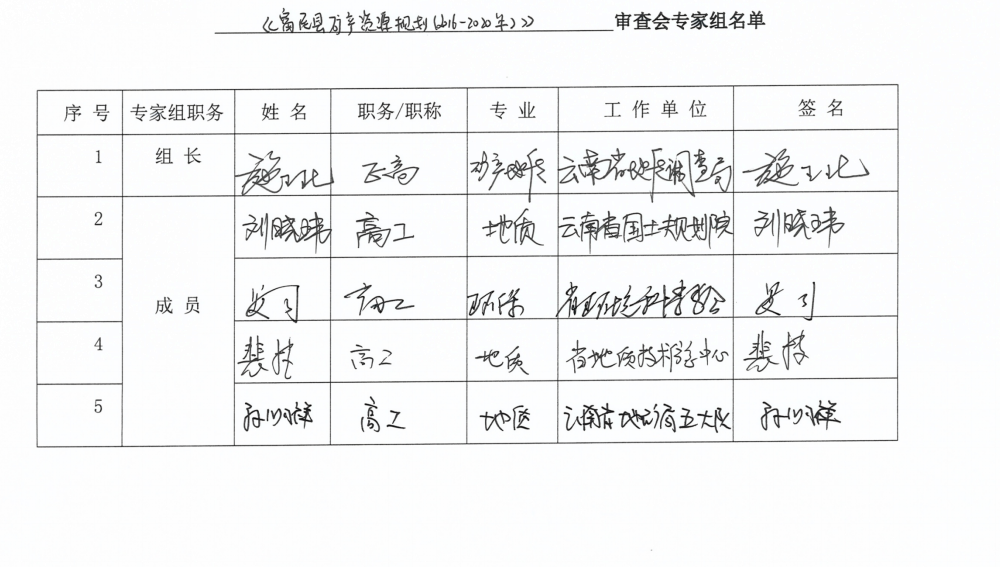 《富民县矿产资源规划(2016-2020年)》 审查会专家组名单
序号 专家组职务 姓名 职务/职称 专业 工作单位 签名
1 组长 施玉北 正高 矿产地质 云南省地质调查局 施玉北
2 刘晓玮 高工 地质 云南省国土规划院 刘晓玮
3 成员 高工 环保 省环境科学学会
4 裴 高工 地质 省地质技术 中心 裴
5 孙 高工 地质 云南省地 局五大队 孙